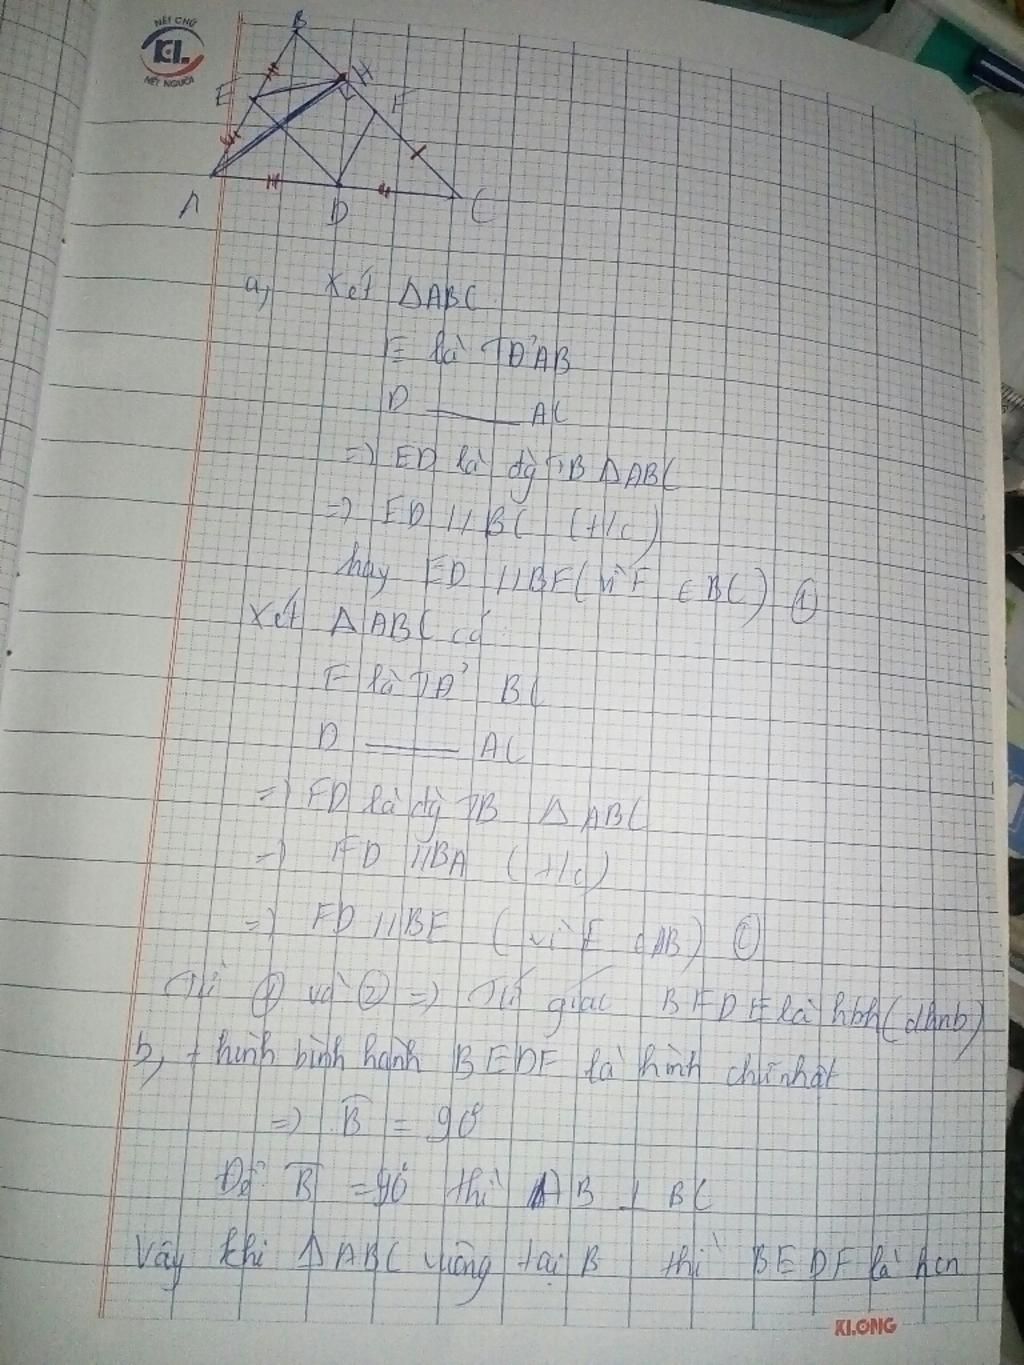 NÉT CHỮ
KL
NẾT NGƯỜI
B
E
H
F
A
D
C
a, Xét ΔABC
E là TĐ' AB
D —— AC
=) ED là đg TB ΔABC
=) ED // BC (t/c)
hay ED // BF (vì F ∈ BC) ①
Xét ΔABC có
F là TĐ' BC
D —— AC
=) FD là đg TB ΔABC
=) FD // BA (t/c)
=) FD // BE (vì E ∈ AB)
Từ ① và ② =) Tứ giác BFDE là hbh (dhnb)
b, + hình bình hành BEDF là hình chữ nhật
=) B = 90°
Để B = 90° thì AB ⊥ BC
Vậy khi ΔABC vuông tại B thì BEDF là hcn
KLONG